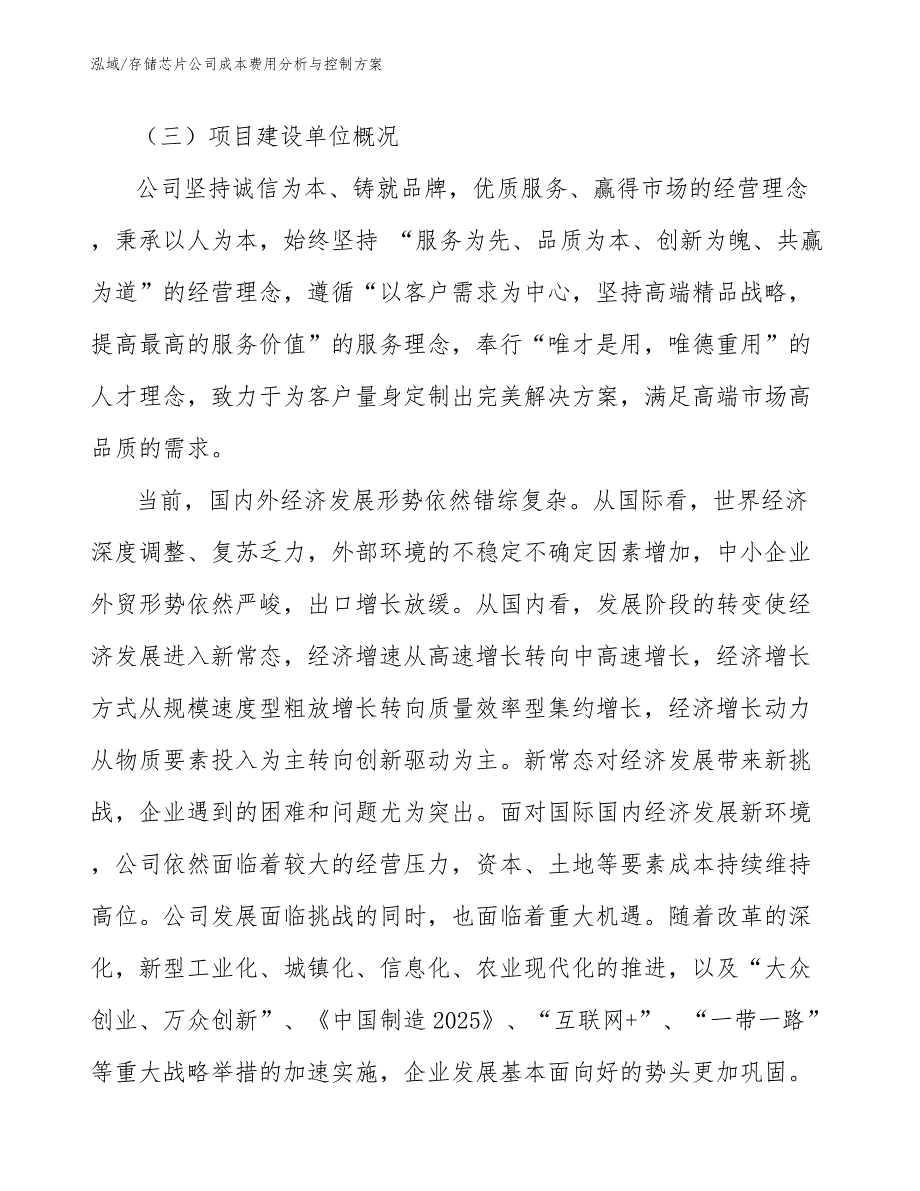 泓域/存储芯片公司成本费用分析与控制方案
（三）项目建设单位概况
公司坚持诚信为本、铸就品牌，优质服务、赢得市场的经营理念
，秉承以人为本，始终坚持 “服务为先、品质为本、创新为魄、共赢
为道”的经营理念，遵循“以客户需求为中心，坚持高端精品战略，
提高最高的服务价值”的服务理念，奉行“唯才是用，唯德重用”的
人才理念，致力于为客户量身定制出完美解决方案，满足高端市场高
品质的需求。
当前，国内外经济发展形势依然错综复杂。从国际看，世界经济
深度调整、复苏乏力，外部环境的不稳定不确定因素增加，中小企业
外贸形势依然严峻，出口增长放缓。从国内看，发展阶段的转变使经
济发展进入新常态，经济增速从高速增长转向中高速增长，经济增长
方式从规模速度型粗放增长转向质量效率型集约增长，经济增长动力
从物质要素投入为主转向创新驱动为主。新常态对经济发展带来新挑
战，企业遇到的困难和问题尤为突出。面对国际国内经济发展新环境
，公司依然面临着较大的经营压力，资本、土地等要素成本持续维持
高位。公司发展面临挑战的同时，也面临着重大机遇。随着改革的深
化，新型工业化、城镇化、信息化、农业现代化的推进，以及“大众
创业、万众创新”、《中国制造 2025》、“互联网+”、“一带一路”
等重大战略举措的加速实施，企业发展基本面向好的势头更加巩固。